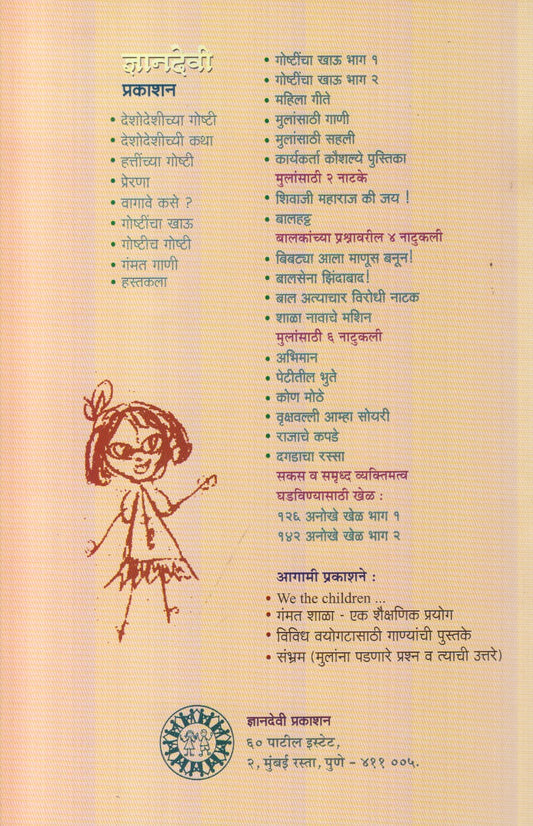 ज्ञानदेवी
प्रकाशन
• देशोदेशीच्या गोष्टी
• देशोदेशीच्यी कथा
• हत्तींच्या गोष्टी
• प्रेरणा
• वागावे कसे ?
• गोष्टींचा खाऊ
• गोष्टीच गोष्टी
• गंमत गाणी
• हस्तकला
• गोष्टींचा खाऊ भाग १
• गोष्टींचा खाऊ भाग २
• महिला गीते
• मुलांसाठी गाणी
• मुलांसाठी सहली
• कार्यकर्ता कौशल्ये पुस्तिका
मुलांसाठी २ नाटके
• शिवाजी महाराज की जय !
• बालहट्ट
बालकांच्या प्रश्नावरील ४ नाटुकली
• बिबट्या आला माणूस बनून!
• बालसेना झिंदाबाद!
• बाल अत्याचार विरोधी नाटक
• शाळा नावाचे मशिन
मुलांसाठी ६ नाटुकली
• अभिमान
• पेटीतील भुते
• कोण मोठे
• वृक्षवल्ली आम्हा सोयरी
• राजाचे कपडे
• दगडाचा रस्सा
सकस व समृध्द व्यक्तिमत्व
घडविण्यासाठी खेळ :
१२६ अनोखे खेळ भाग १
१४२ अनोखे खेळ भाग २
आगामी प्रकाशने :
• We the children ...
• गंमत शाळा - एक शैक्षणिक प्रयोग
• विविध वयोगटासाठी गाण्यांची पुस्तके
• संभ्रम (मुलांना पडणारे प्रश्न व त्याची उत्तरे)
ज्ञानदेवी प्रकाशन
६० पाटील इस्टेट,
२, मुंबई रस्ता, पुणे - ४११ ००५.